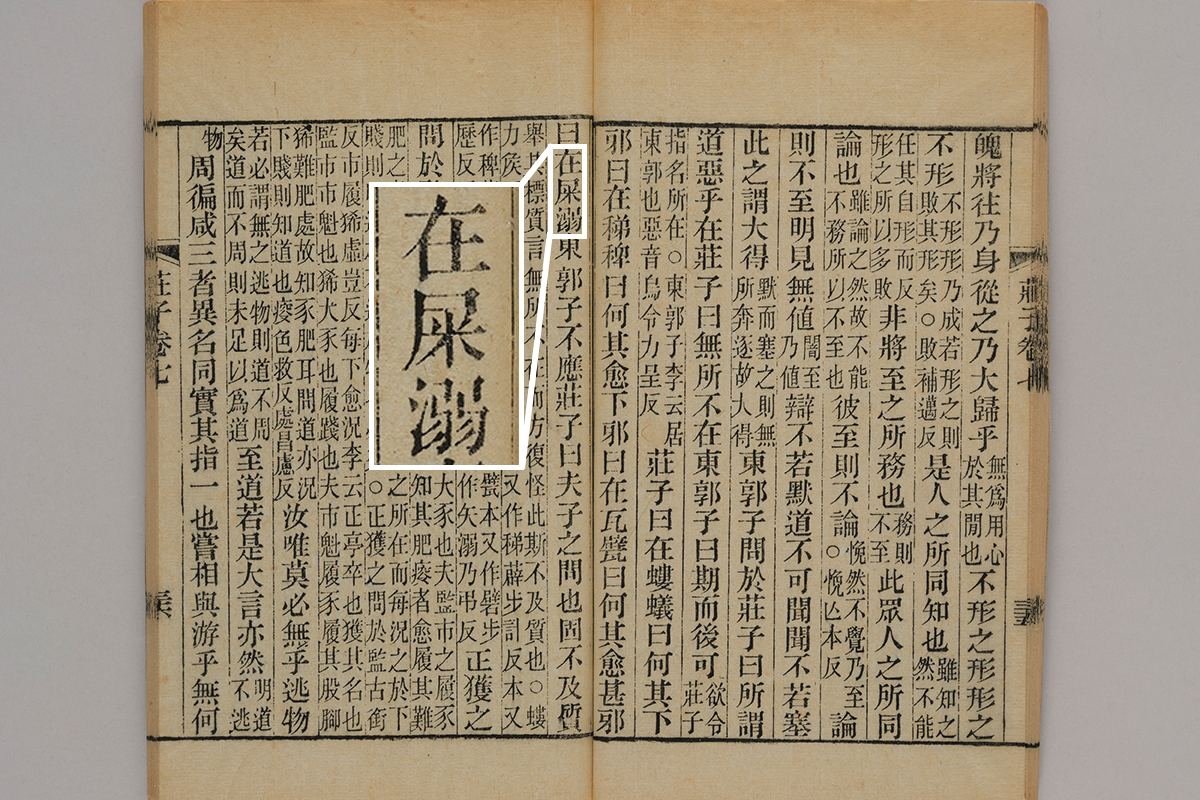 魄將往乃身從之乃大歸乎無爲用心於其閒也不形之形形之
不形不形形乃成若形之則敗其形矣○敗補邁反是人之所同知也雖知之然不能
任其自形而反形之所以多敗非將至之所務也務則不至此眾人之所同
論也雖論之然故不能不務所以不至也彼至則不論悗然不覺乃至○悗亡本反論
則不至明見無値闇至乃値辯不若默道不可聞聞不若塞
此之謂大得默而塞之則無所奔逐故大得東郭子問於莊子曰所謂
道惡乎在莊子曰無所不在東郭子曰期而後可欲令莊子
指名所在○東郭子李云居東郭也惡音烏令力呈反莊子曰在螻蟻曰何其下
邪曰在稊稗曰何其愈下邪曰在瓦甓曰何其愈甚邪
曰在屎溺東郭子不應莊子曰夫子之問也固不及質
舉其標質言無所不在而方復怪此斯不及質也○螻力侯又作稊薜步計反本又
作稗甓本又作甓步歷反作矢溺乃弔反正獲之
問於大豕也夫監市之履豕知其肥瘦者愈履其難
肥之之所在而每況之於下賤則○正獲之問於監古銜
反市履狶虛豈反每下愈況李云正亭卒也獲其名也監市市魁也狶大豕也履踐也夫市魁履豕履其股脚
狶難肥處故知豕肥耳問道亦況下賤則知道也瘦色救反處昌慮反汝唯莫必無乎逃物
若必謂無之逃物則道不周矣道而不周則未足以爲道至道若是大言亦然明道不逃
物周徧咸三者異名同實其指一也嘗相與游乎無何
莊子卷七
莊子卷七
在屎溺